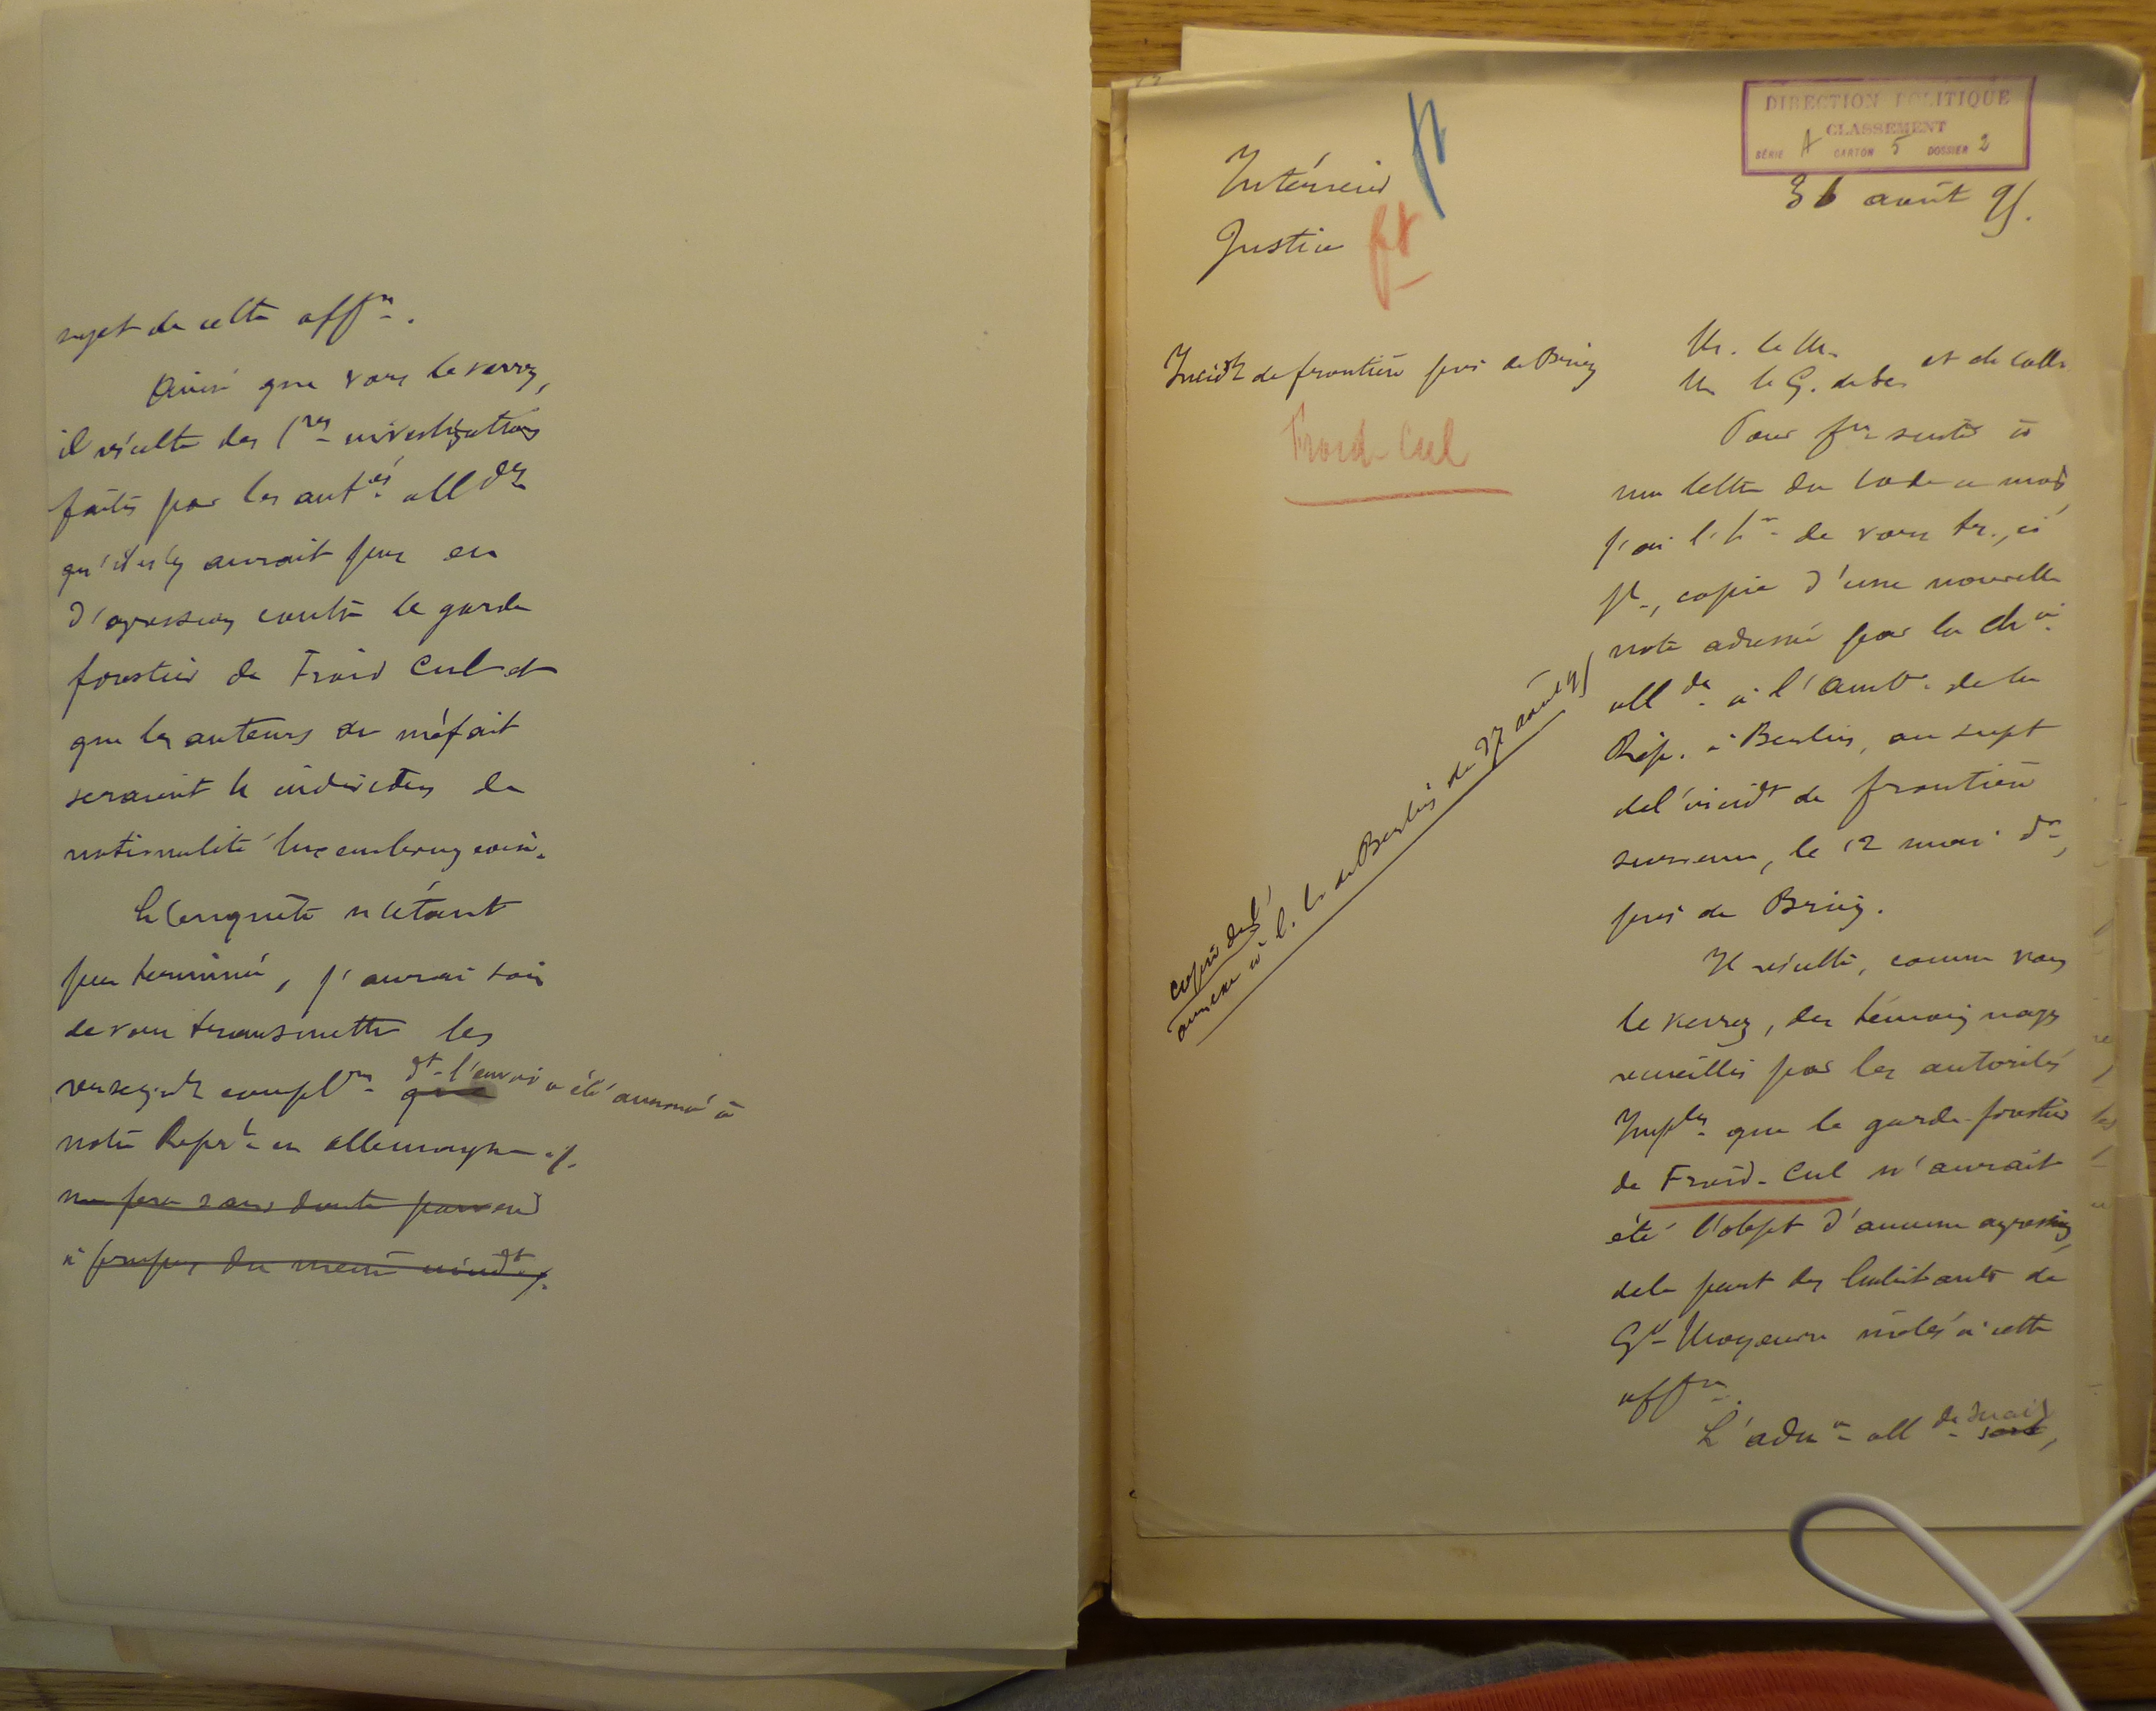 sujet de cette aff.re.
Ainsi que vous le verrez,
il résulte des 1res investigations
faites par les autés alldes
qu'il n'y aurait pas eu
d'agression contre le garde
forestier de Froid Cul et
que les auteurs du méfait
seraient individus de
nationalité luxembourgeoise.
L'enquête n'étant
pas terminée, j'aurai soin
de vous transmettre les
renseigts complres dt l'envoi a été annoncé à
notre Reprt en Allemagne ./.
me fera sans doute parvenir
à propos du même incidt ./.
DIRECTION POLITIQUE
CLASSEMENT
SÉRIE A CARTON 5 DOSSIER 2
Intérieur
Justice
31 août 95.
Incidt de frontière près de Briey
Froid-Cul
M. le M.
M. le G. des Sc. et ch. coll.
Pour fre suite à
ma lettre du de ce mois
j'ai l'hr de vous tr., ci
jt, copie d'une nouvelle
note adressée par la Chie
allde à l'Ambde de la
Rép. à Berlin, au sujet
de l'incidt de frontière
survenu, le 12 mai dr,
près de Briey.
Il résulte, comme vous
le verrez, des témoignages
recueillis par les autorités
Imples que le garde-forestier
de Froid-Cul n'aurait
été l'objet d'aucune agression
de la part des habitants de
Gd Moyeuvre mêlés à cette
affre.
L'admon allde serait
copie de l'
annexe à l. de Berlin du 27 août 95